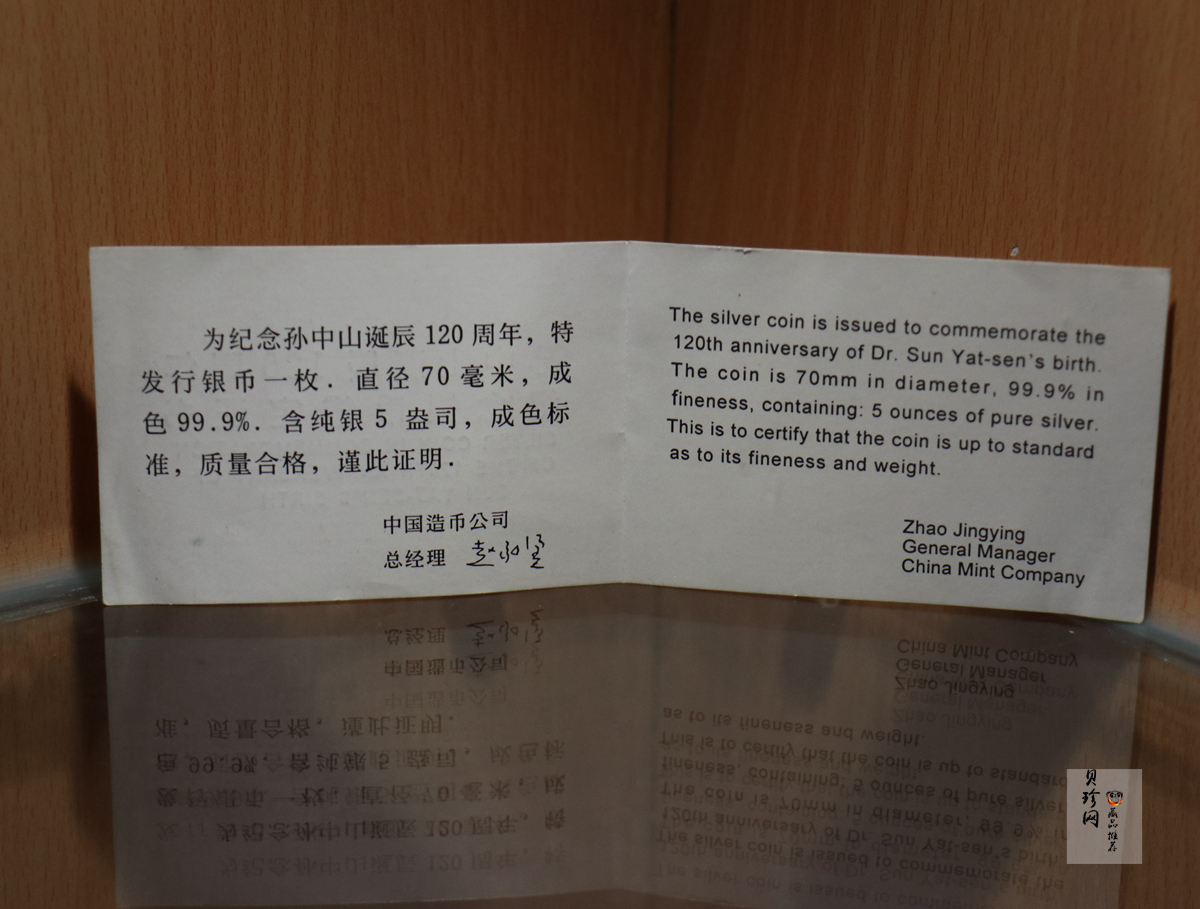 为纪念孙中山诞辰 120 周年，特
发行银币一枚．直径 70 毫米，成
色 99.9%．含纯银 5 盎司，成色标
准，质量合格，谨此证明．
中国造币公司
总经理
The silver coin is issued to commemorate the
120th anniversary of Dr. Sun Yat-sen's birth.
The coin is 70mm in diameter, 99.9% in
fineness, containing: 5 ounces of pure silver.
This is to certify that the coin is up to standard
as to its fineness and weight.
Zhao Jingying
General Manager
China Mint Company
贝珍网
藏品推荐